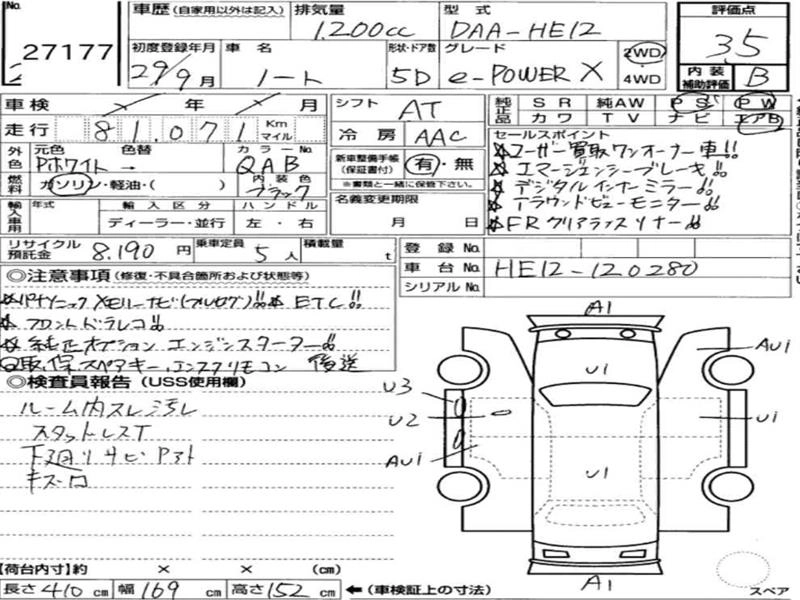 No. 27177
車歴(自家用以外は記入)
排気量 1,200cc
型式 DAA-HE12
評価点 3.5
初度登録年月 29/9月
車名 ノート
形状・ドア数 5D
グレード e-POWER X
2WD
4WD
内装補助評価 B
車検 年 月
シフト AT
純正品 SR 純AW PS PW
カワ TV ナビ エアB
走行 81,071 Km マイル
冷房 AAC
セールスポイント
外色 元色 Pホワイト → 色替
カラーNo QAB
新車整備手帳(保証書付) 有・無
※書類と一緒に保管下さい。
☆ユーザー買取ワンオーナー車!!
☆エマージェンシーブレーキ!!
燃料 ガソリン・軽油・( )
内装色 ブラック
☆デジタルインナーミラー!!
輸入車用 年式 輸入区分 ハンドル
ディーラー・並行 左・右
名義変更期限
月 日
☆アラウンドビューモニター!!
☆FRクリアランスソナー!!
リサイクル預託金 8,190円
乗車定員 5人
積載量 t
登録No.
車台No. HE12-120280
シリアルNo.
◎注意事項(修復・不具合箇所および状態等)
☆パナソニックメモリーナビ(フルセグ)!!☆ETC!!
☆フロントドラレコ!!
☆純正オプションエンジンスターター!!
取,保,スペアキー,エンスタリモコン 後送
◎検査員報告(USS使用欄)
ルーム内スレ汚レ
スタットレスT
下廻リサビ
キズ凹
A1
AU1
U1
U3
U2
U1
AU1
U1
A1
【荷台内寸】約 × × (cm)
長さ 410 cm 幅 169 cm 高さ 152 cm ←(車検証上の寸法)
スペア